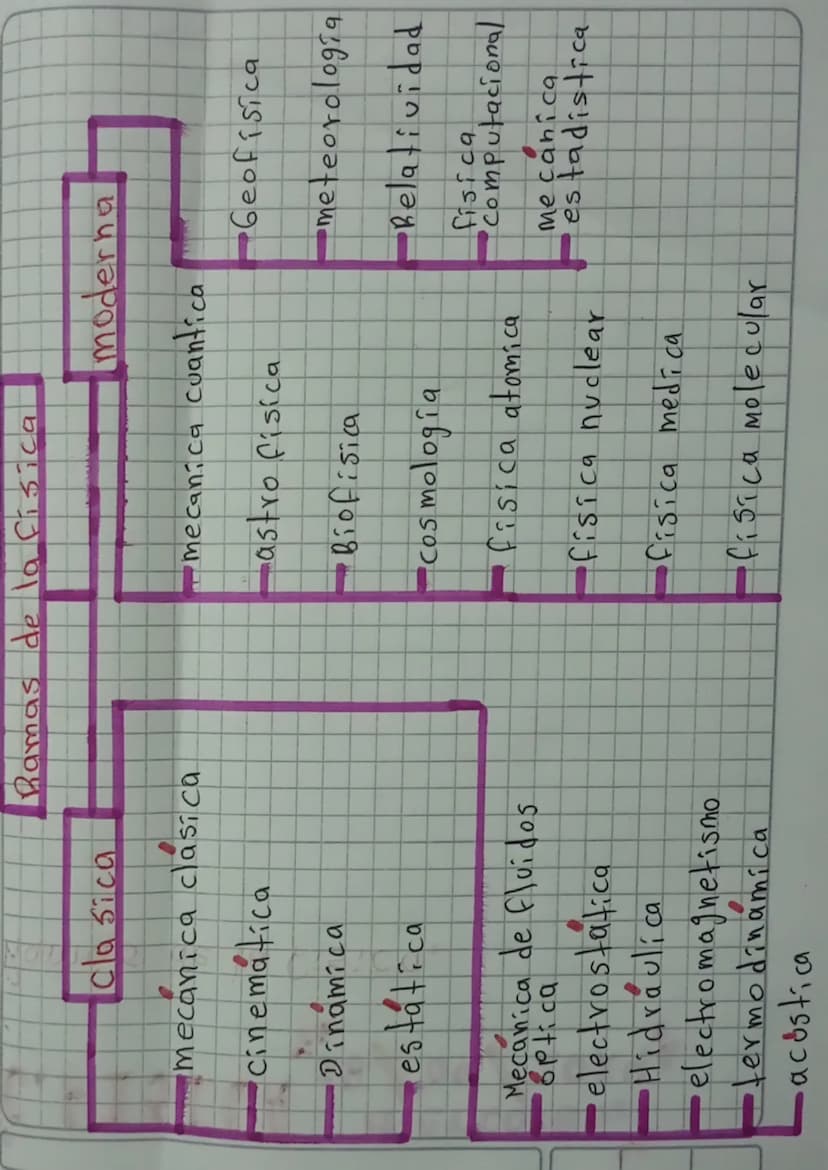 Ramas de la física
Clasica
mecánica clásica
cinemática
Dinámica
estática
Mecánica de fluidos
óptica
electrostática
Hidráulica
electromagnetismo
termodinámica
acústica
moderna
mecanica cuantica
astro física
Biofísica
cosmología
física atomica
física nuclear
física medica
física molecular
Geofísica
meteorología
Relatividad
física
computacional
mecánica
estadística